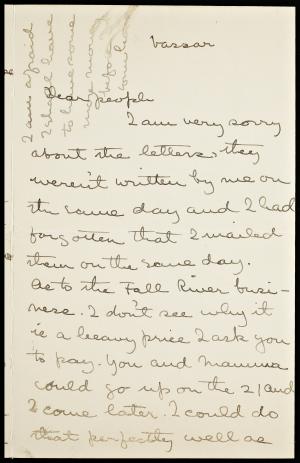 Vassar
Dear people
I am very sorry
about the letters, they
weren't written by me on
the same day and I had
forgotten that I mailed
them on the same day.
As to the Fall River busi-
ness. I don't see why it
is a heavy price I ask you
to pay. You and Mamma
could go up on the 21 and
I come later. I could do
that perfectly well as
I am afraid
I shall have
to have some
more money
before I
come home